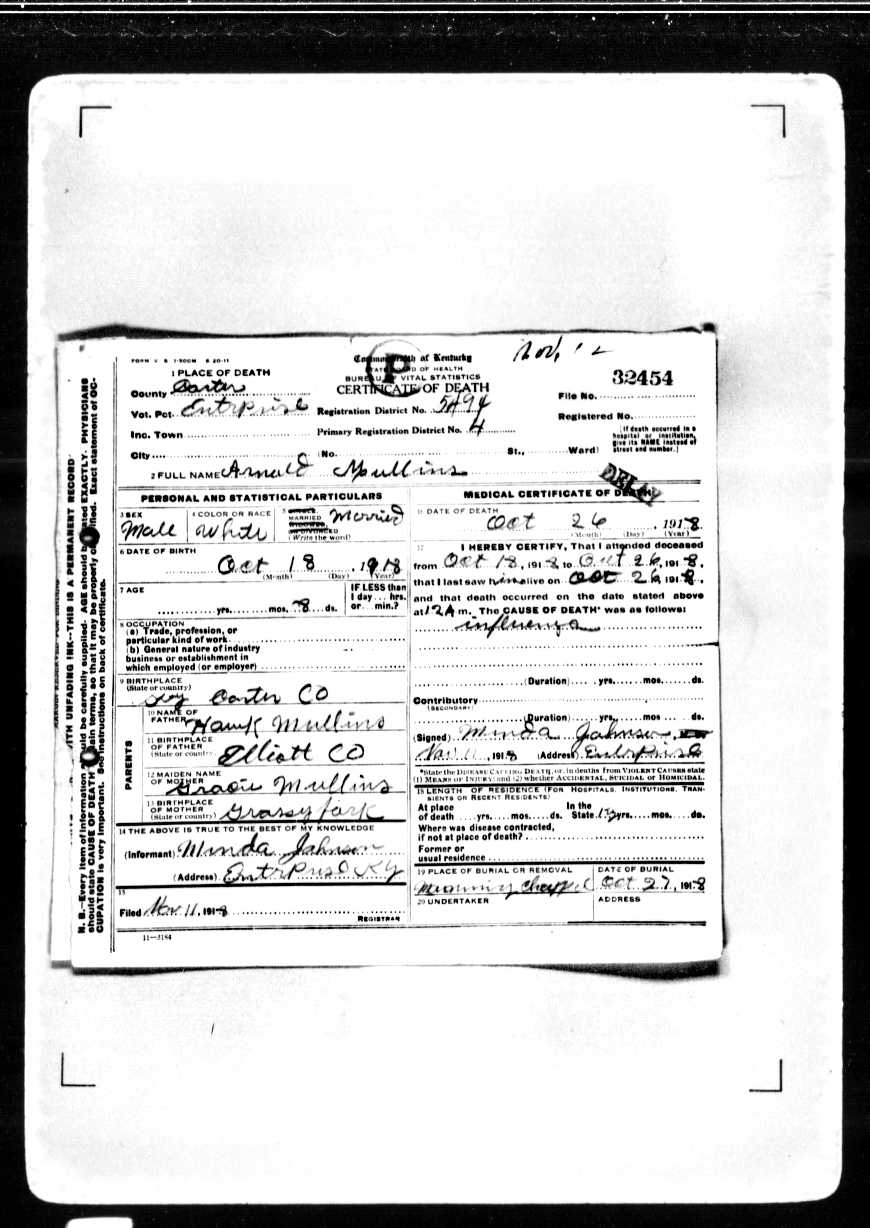 Nov. 12
FORM V. S. 1-500M 6-20-11
Commonwealth of Kentucky
STATE BOARD OF HEALTH
BUREAU OF VITAL STATISTICS
CERTIFICATE OF DEATH
32454
1 PLACE OF DEATH
County Carter
Vot. Pct. Entrprise Registration District No. 5494
Inc. Town Primary Registration District No. 4
City (No. St., Ward)
File No.
Registered No.
(If death occurred in a hospital or institution, give its NAME instead of street and number.)
2 FULL NAME Arnold Mullins
DELAY
PERSONAL AND STATISTICAL PARTICULARS
3 SEX Male
4 COLOR OR RACE White
5 SINGLE MARRIED WIDOWED OR DIVORCED (Write the word) Married
6 DATE OF BIRTH
Oct 18, 1918
(Month) (Day) (Year)
7 AGE
yrs. mos. 8 ds.
IF LESS than 1 day ... hrs. or ... min.?
8 OCCUPATION
(a) Trade, profession, or
particular kind of work
(b) General nature of industry
business or establishment in
which employed (or employer)
9 BIRTHPLACE
(State or country)
Ky Carter CO
PARENTS
10 NAME OF FATHER Hawk Mullins
11 BIRTHPLACE OF FATHER (State or country) Elliott CO
12 MAIDEN NAME OF MOTHER Gracie Mullins
13 BIRTHPLACE OF MOTHER (State or country) Grassy fark
14 THE ABOVE IS TRUE TO THE BEST OF MY KNOWLEDGE
(Informant) Minda Johnson
(Address) Entrprise KY
15
Filed Nov 11, 1918
REGISTRAR
11—3184
MEDICAL CERTIFICATE OF DEATH
16 DATE OF DEATH
Oct 26, 1918
(Month) (Day) (Year)
17 I HEREBY CERTIFY, That I attended deceased
from Oct 18, 1918 to Oct 26, 1918,
that I last saw him alive on Oct 26, 1918,
and that death occurred on the date stated above
at 12 A m. The CAUSE OF DEATH* was as follows:
influenza
(Duration) yrs. mos. ds.
Contributory
(SECONDARY)
(Duration) yrs. mos. ds.
(Signed) Minda Johnson,
Nov 11, 1918 (Address) Enterprise
*State the DISEASE CAUSING DEATH, or, in deaths from VIOLENT CAUSES state
(1) MEANS OF INJURY; and (2) whether ACCIDENTAL, SUICIDAL or HOMICIDAL.
18 LENGTH OF RESIDENCE (FOR HOSPITALS, INSTITUTIONS, TRANSIENTS OR RECENT RESIDENTS)
At place of death yrs. mos. ds. In the State yrs. mos. ds.
Where was disease contracted,
if not at place of death?
Former or
usual residence
19 PLACE OF BURIAL OR REMOVAL
DATE OF BURIAL
Oct 27, 1918
20 UNDERTAKER
ADDRESS
N. B.—Every item of information should be carefully supplied. AGE should be stated EXACTLY. PHYSICIANS
should state CAUSE OF DEATH in plain terms, so that it may be properly classified. Exact statement of OC-
CUPATION is very important. See instructions on back of certificate.
WITH UNFADING INK--THIS IS A PERMANENT RECORD